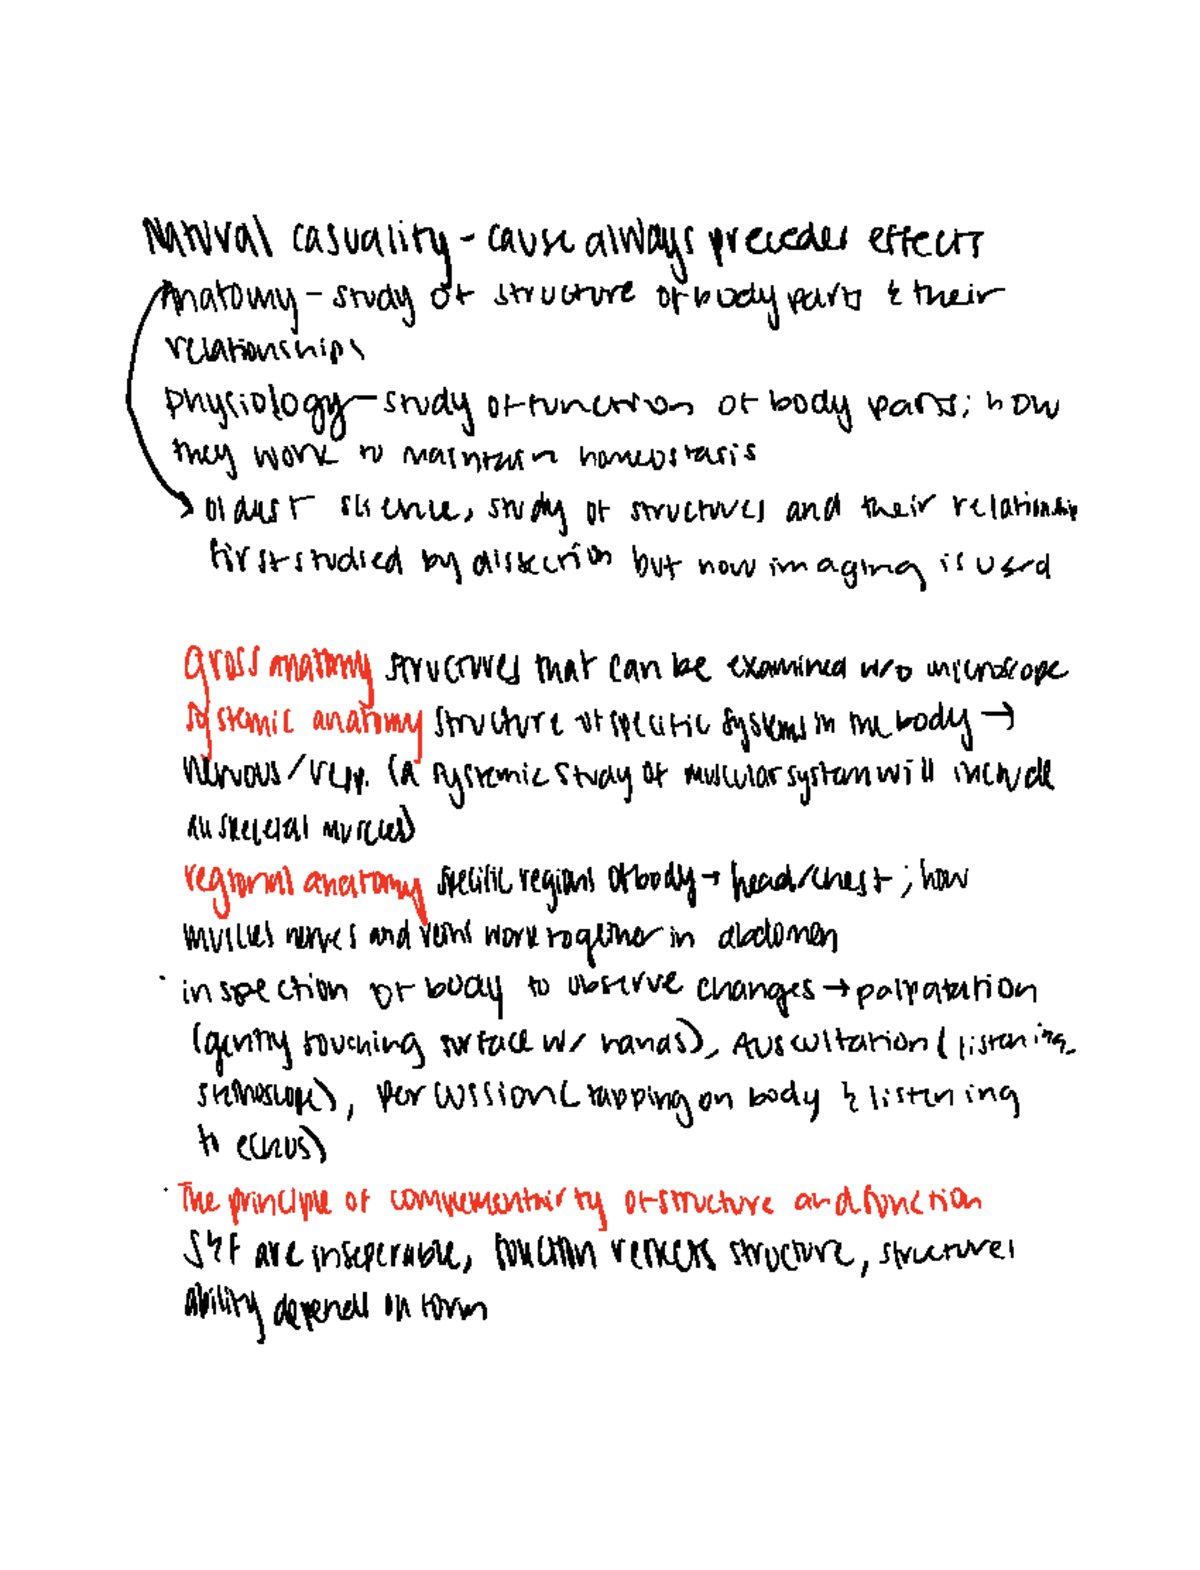 Natural casuality - cause always precedes effects
Anatomy - study of structure of body parts & their
relationships
physiology - study of function of body parts; how
they work to maintain homeostasis
oldest science, study of structures and their relationship
first studied by dissection but now imaging is used
gross anatomy structures that can be examined w/o microscope
systemic anatomy structure of specific systems in the body →
nervous/resp. (a systemic study of muscular system will include
all skeletal muscles)
regional anatomy specific regions of body → head/chest ; how
muscles nerves and veins work together in abdomen
· inspection of body to observe changes → palpatation
(gently touching surface w/ hands), Auscultation (listening
stethoscope), percussion (tapping on body & listening
to echos)
· The principle of complementairty of structure and function
S & F are inseperable, function reflects structure, structures
ability depends on form